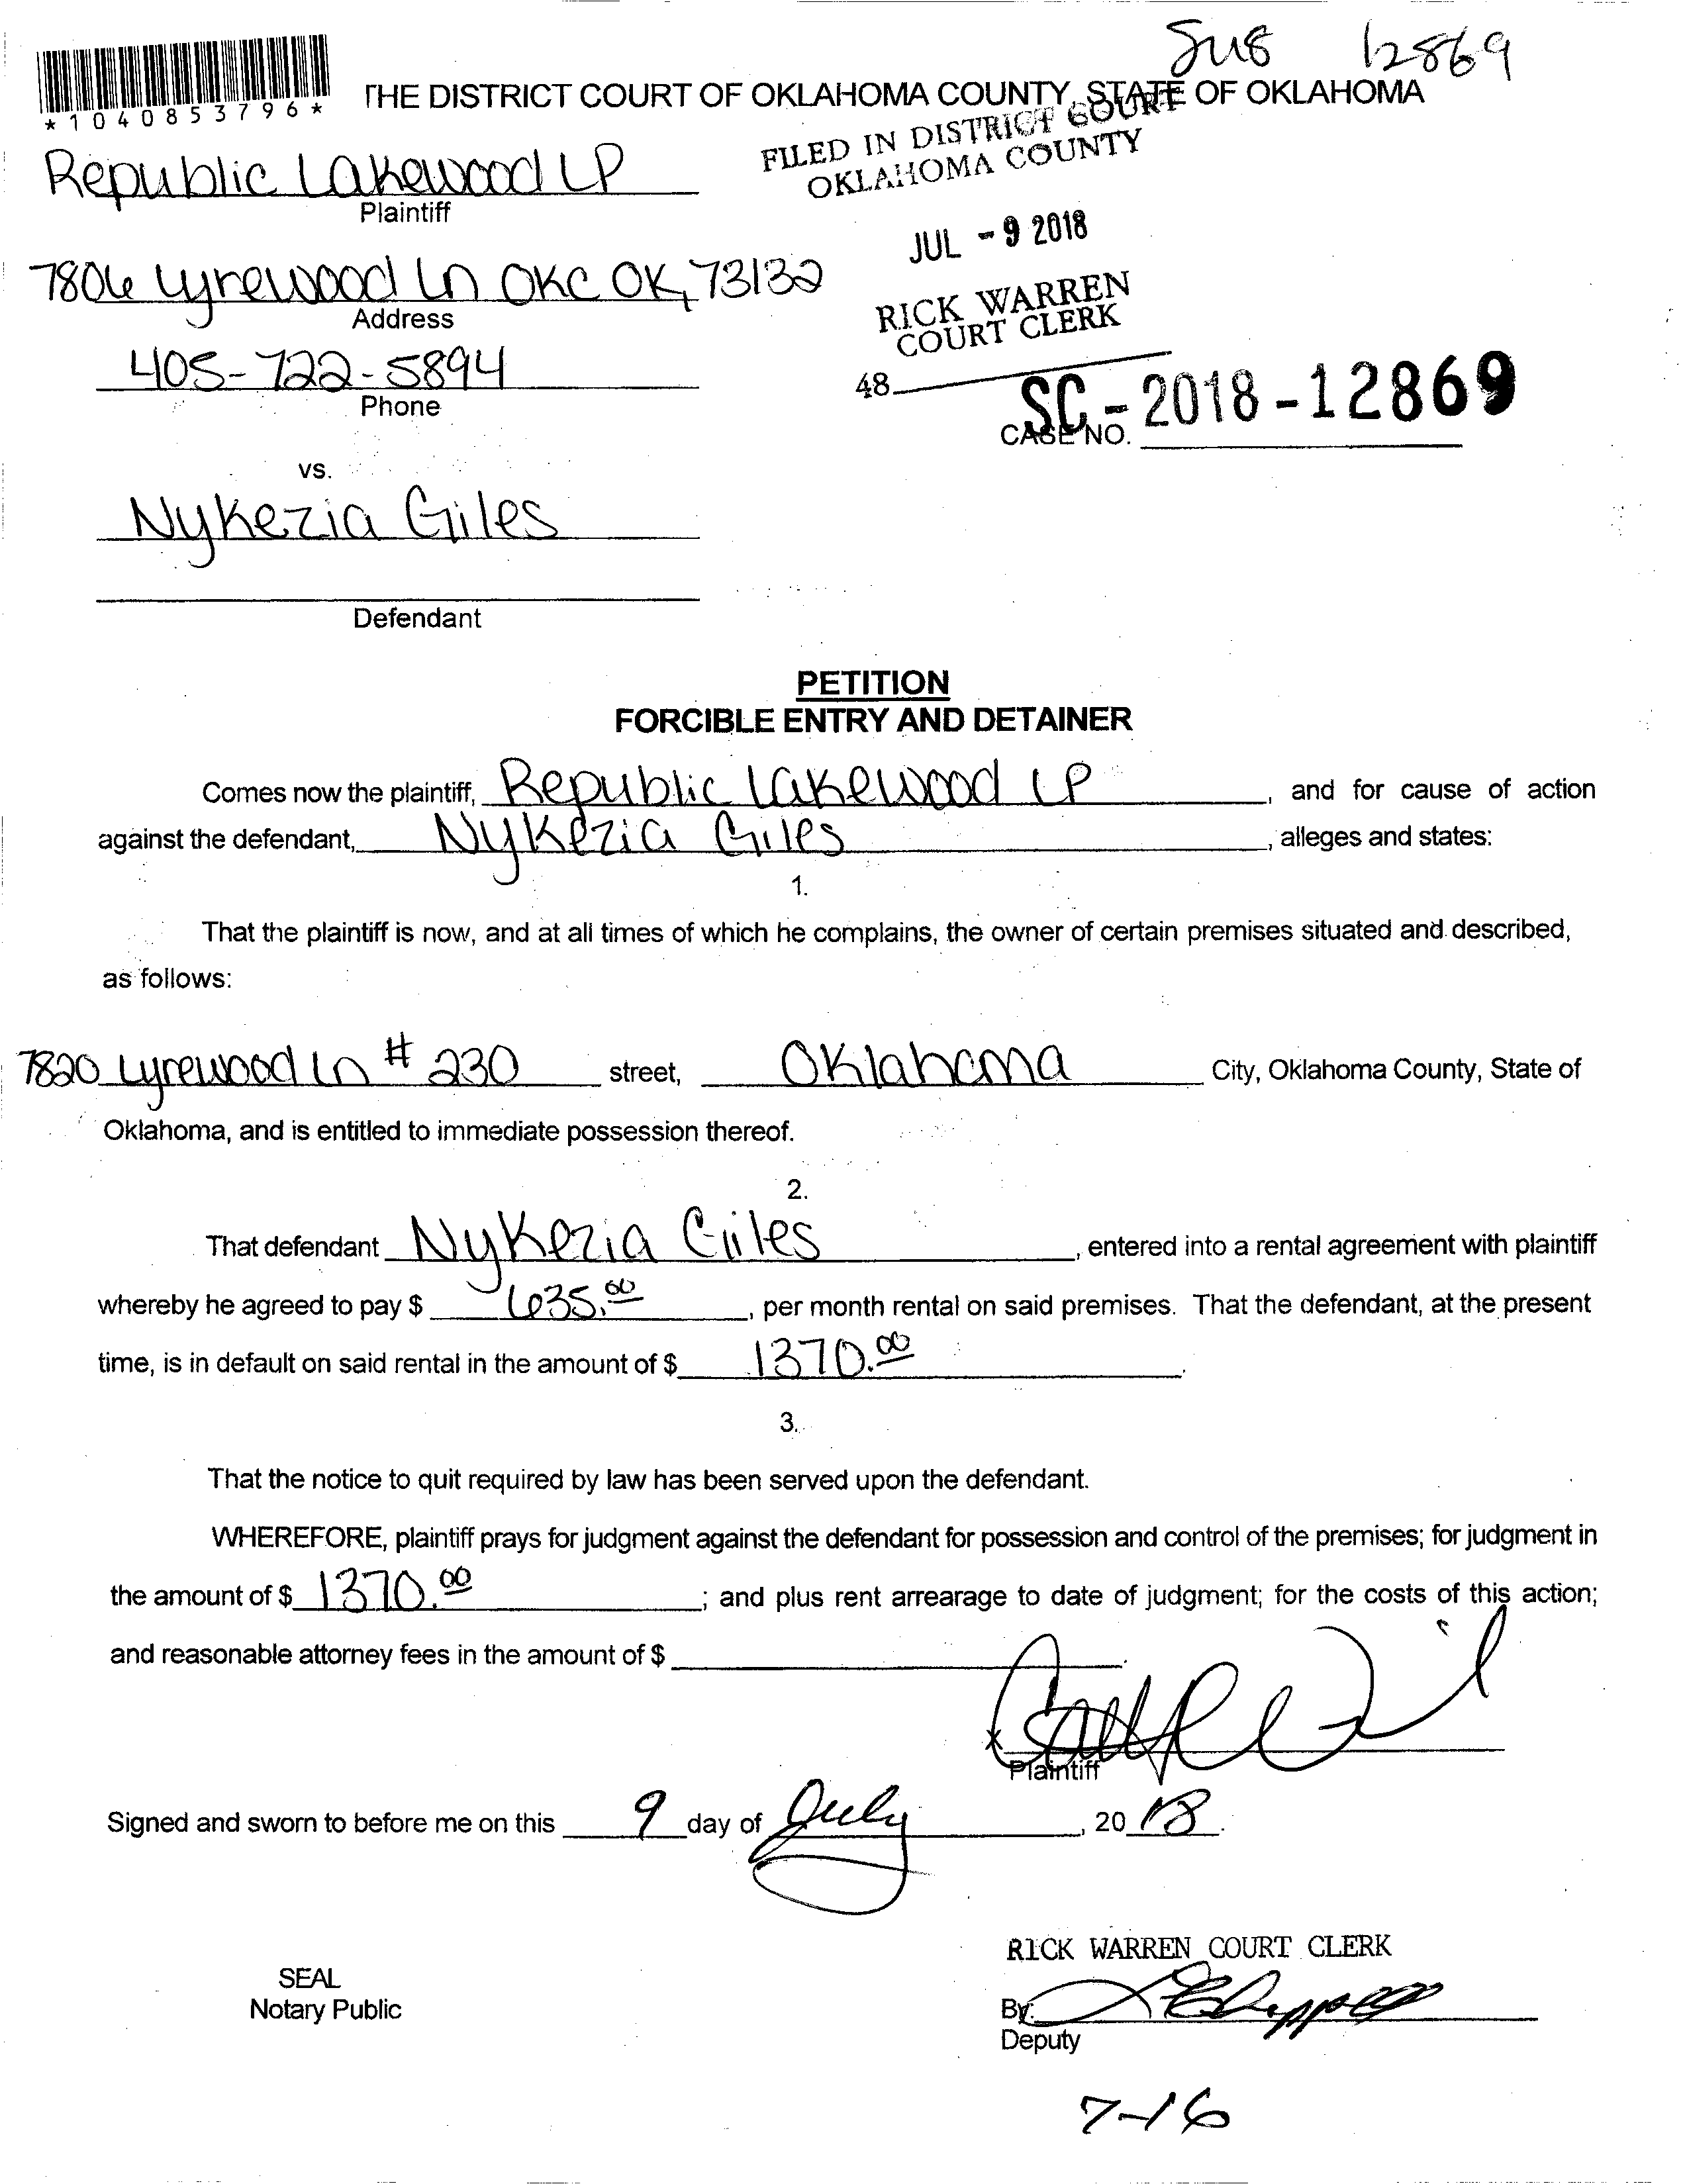 Sus 12869
*1040853796*
THE DISTRICT COURT OF OKLAHOMA COUNTY, STATE OF OKLAHOMA
FILED IN DISTRICT COURT
OKLAHOMA COUNTY
Republic Lakewood LP
Plaintiff
JUL - 9 2018
7806 Lyrewood Ln OKC OK, 73132
Address
RICK WARREN
COURT CLERK
405-722-5894
Phone
48
SC - 2018 - 12869
CASE NO.
vs.
Nykezia Giles
Defendant
PETITION
FORCIBLE ENTRY AND DETAINER
Comes now the plaintiff, Republic Lakewood LP, and for cause of action
against the defendant, Nykezia Giles, alleges and states:
1.
That the plaintiff is now, and at all times of which he complains, the owner of certain premises situated and described,
as follows:
7820 Lyrewood Ln # 230 street, Oklahoma City, Oklahoma County, State of
Oklahoma, and is entitled to immediate possession thereof.
2.
That defendant Nykezia Giles, entered into a rental agreement with plaintiff
whereby he agreed to pay $ 635.00, per month rental on said premises. That the defendant, at the present
time, is in default on said rental in the amount of $ 1370.00.
3.
That the notice to quit required by law has been served upon the defendant.
WHEREFORE, plaintiff prays for judgment against the defendant for possession and control of the premises; for judgment in
the amount of $ 1370.00; and plus rent arrearage to date of judgment; for the costs of this action;
and reasonable attorney fees in the amount of $
x
Plaintiff
Signed and sworn to before me on this 9 day of July, 2018.
RICK WARREN COURT CLERK
SEAL
Notary Public
By:
Deputy
7-16